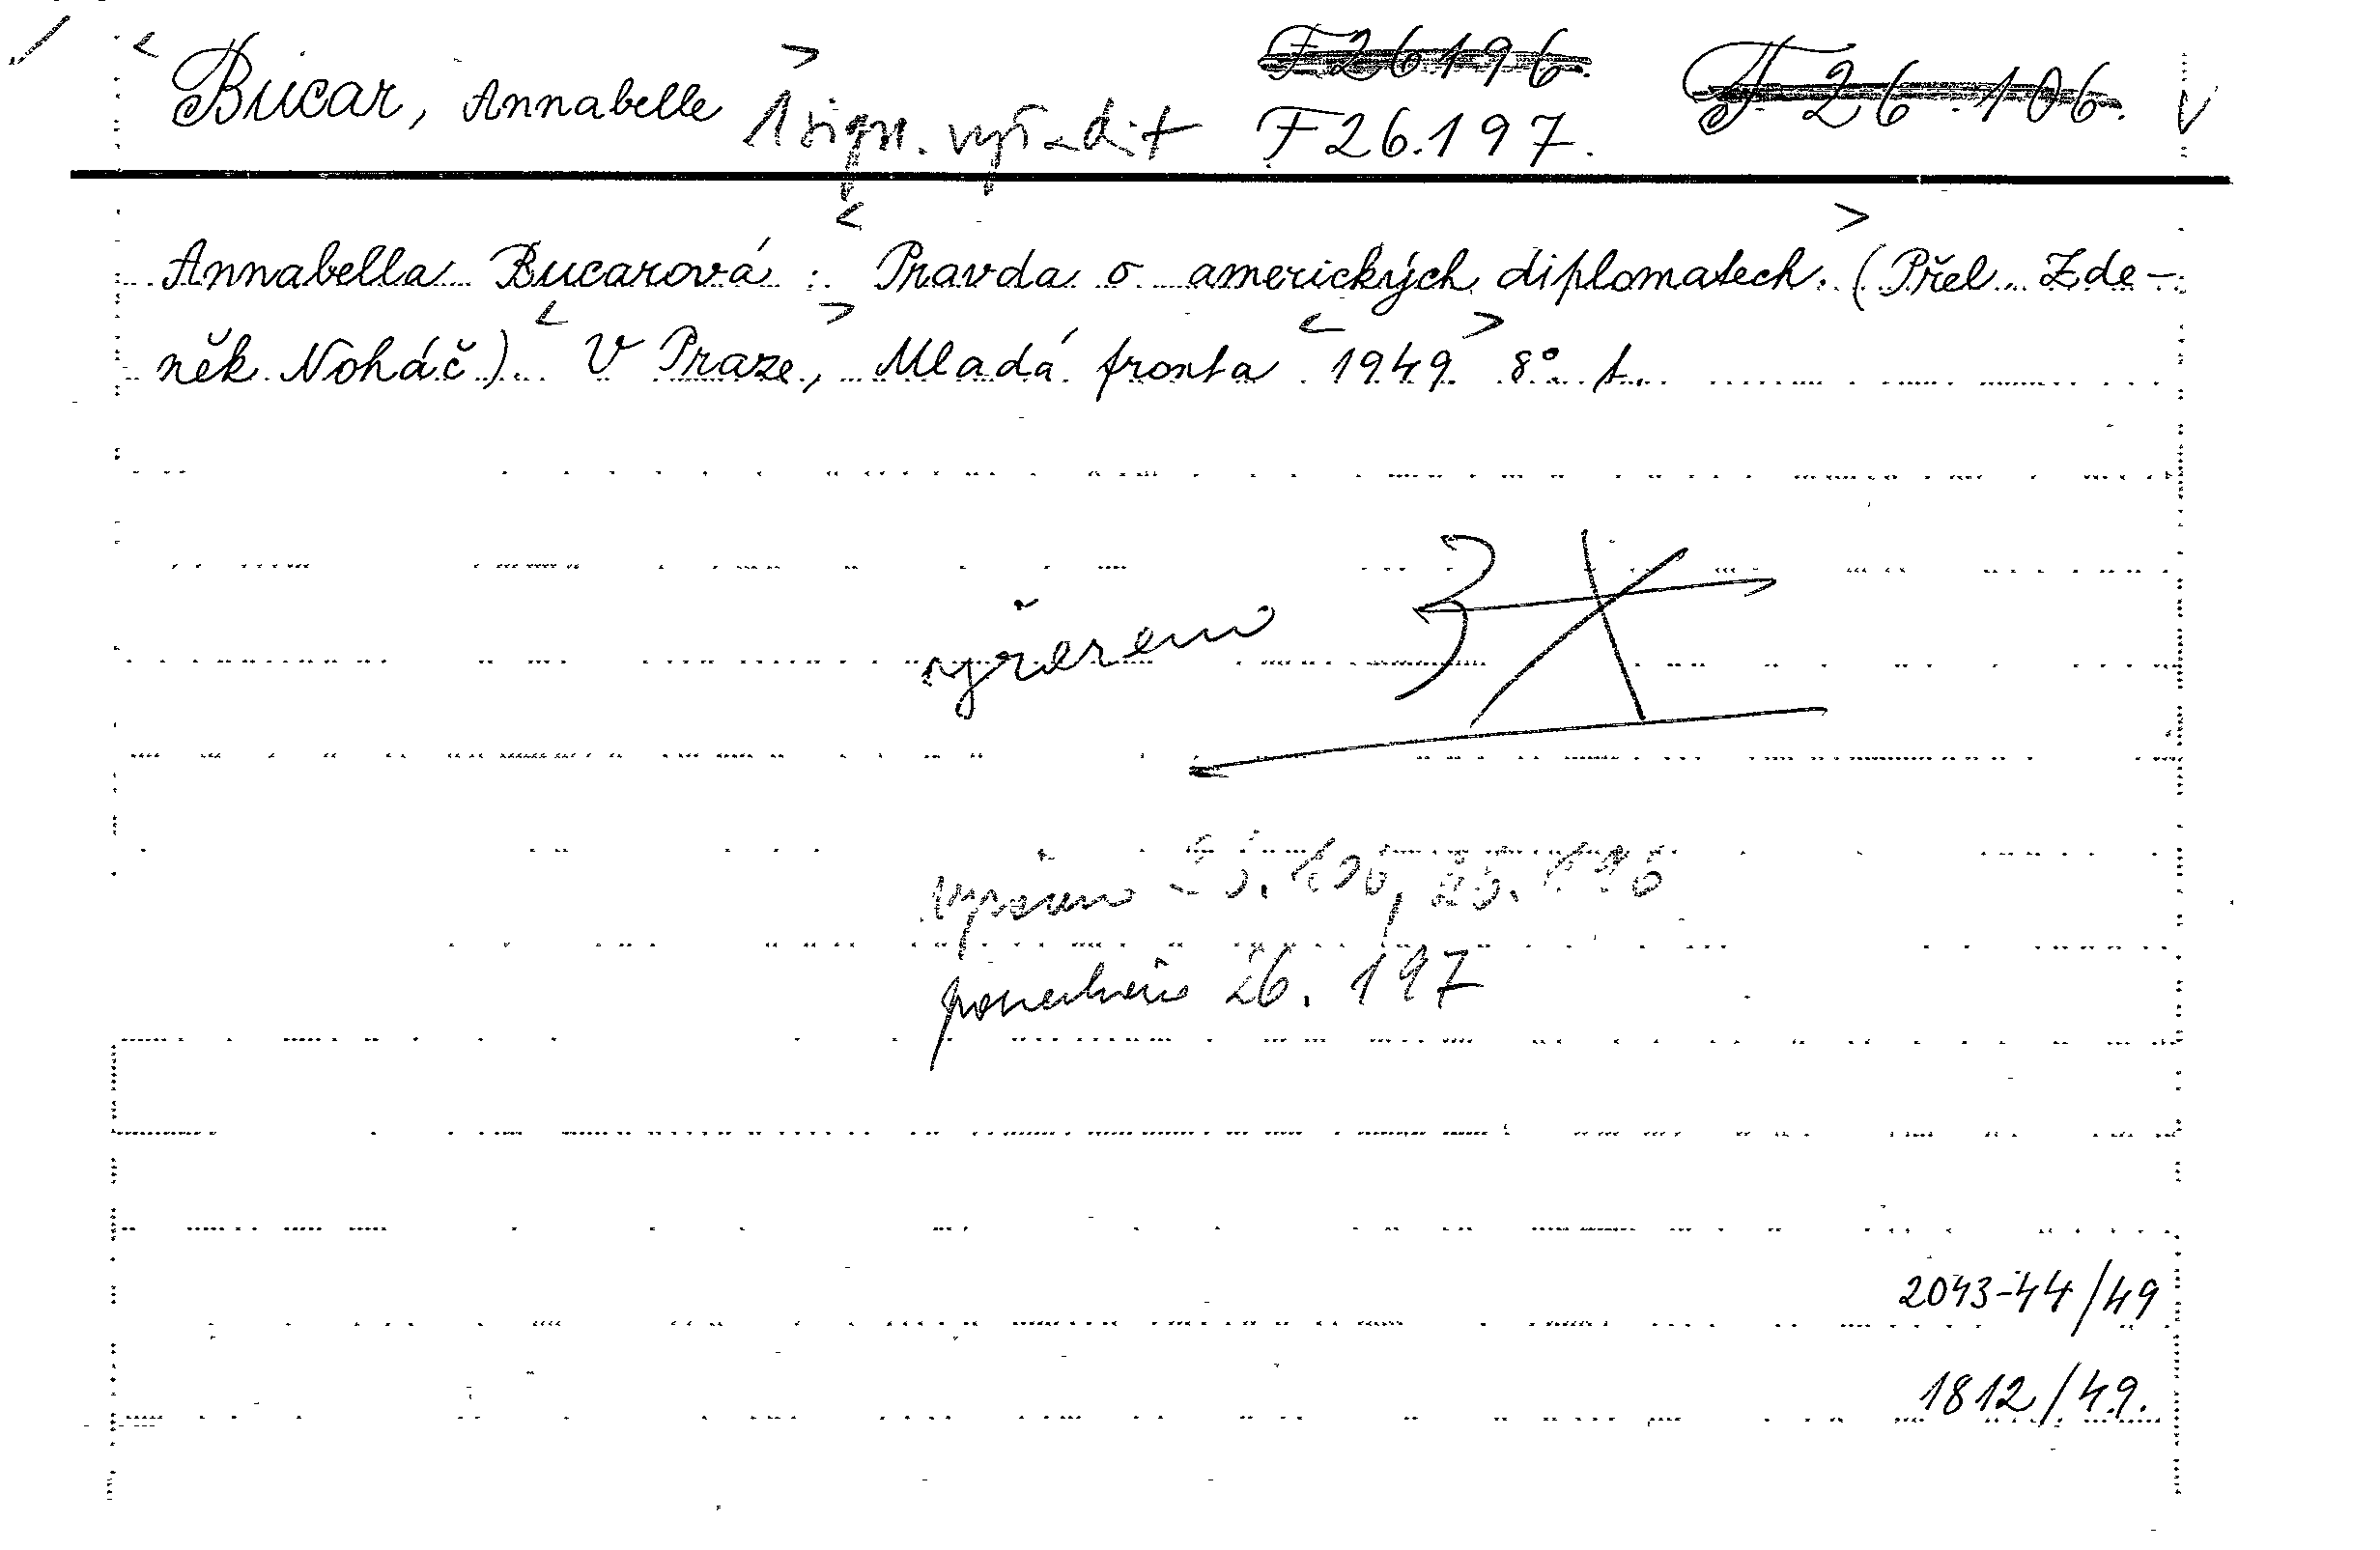 < Bucar, Annabelle > F 26196. F 26.106. V
1 sign. vyřadit F 26.197.
Annabella Bucarová : < Pravda o amerických diplomatech. > (Přel. Zde-
něk Noháč). < V Praze, > Mladá fronta < 1949 > 8°. 1.
vyřazeno 3X
vyřazeno 26.106, 26.196
ponecháno 26.197
2043-44/49
1812/49.